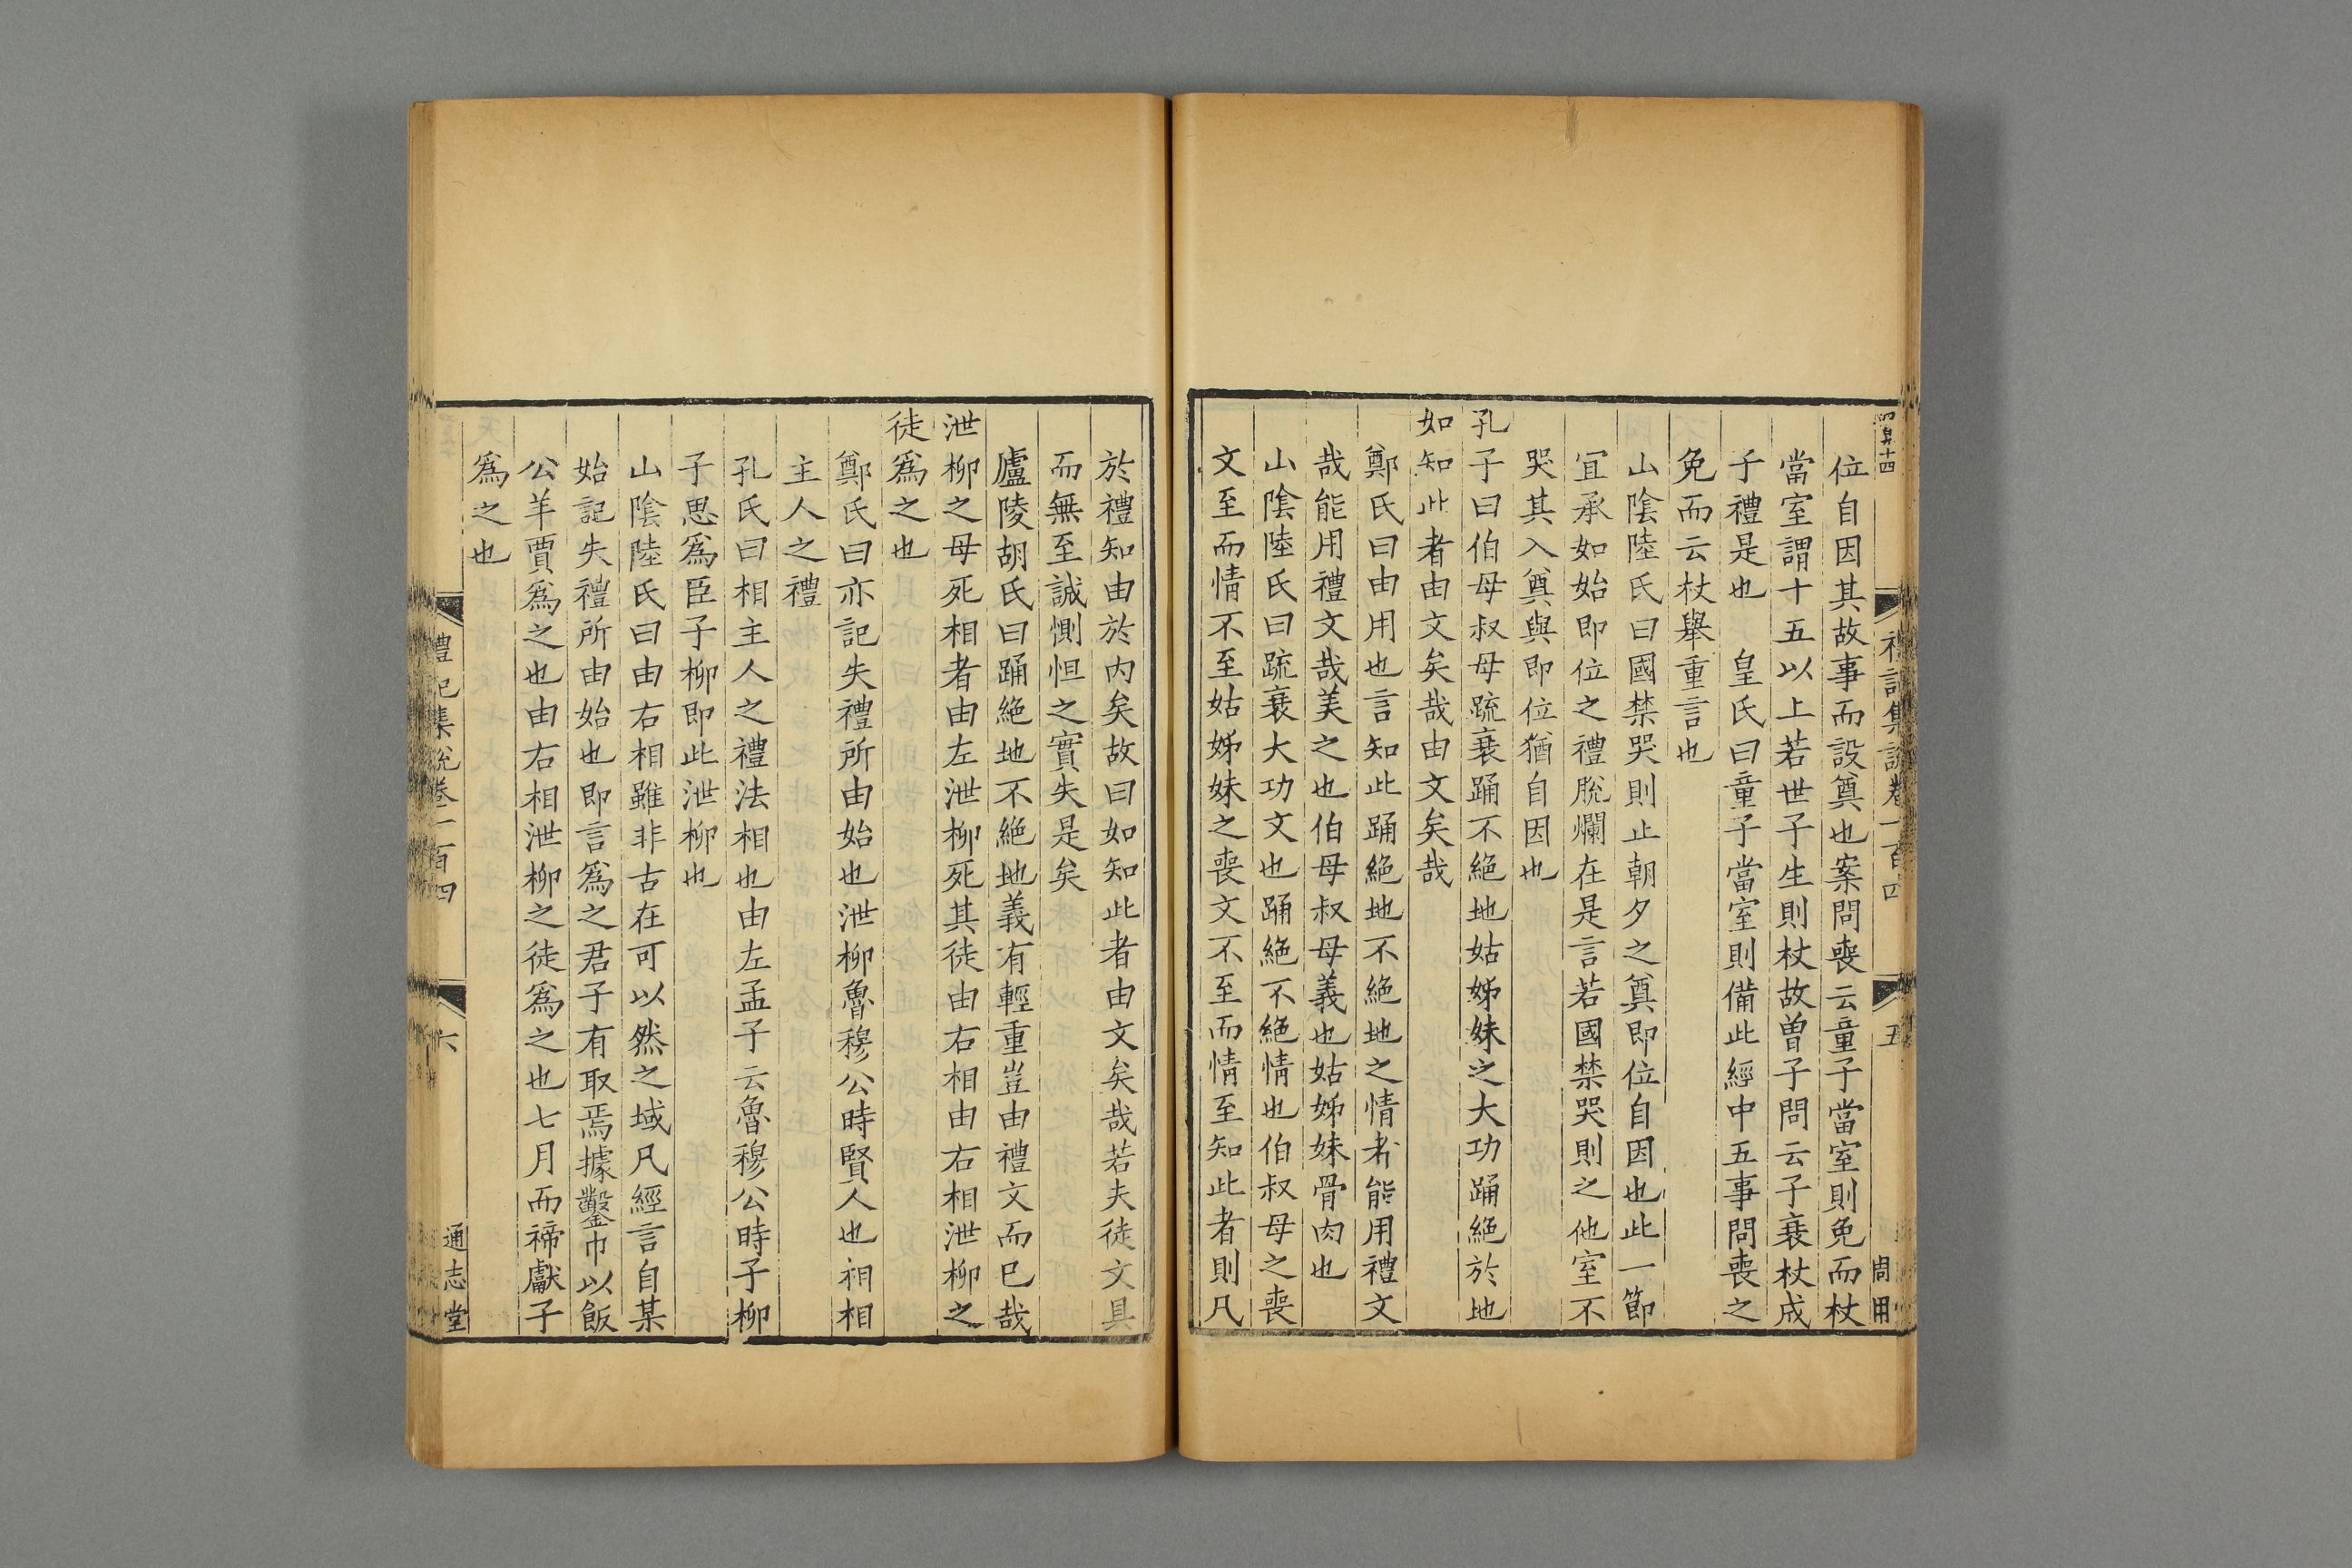 禮記集說卷一百四
五
位自因其故事而設奠也案問喪云童子當室則免而杖
當室謂十五以上若世子生則杖故曾子問云子衰杖成
子禮是也　皇氏曰童子當室則備此經中五事問喪之
免而云杖舉重言也
山陰陸氏曰國禁哭則止朝夕之奠即位自因也此一節
宜承如始即位之禮脫爛在是言若國禁哭則之他室不
哭其入奠與即位猶自因也
孔子曰伯母叔母疏衰踊不絕地姑姊妹之大功踊絕於地
如知此者由文矣哉由文矣哉
鄭氏曰由用也言知此踊絕地不絕地之情者能用禮文
哉能用禮文哉美之也伯母叔母義也姑姊妹骨肉也
山陰陸氏曰疏衰大功文也踊絕不絕情也伯叔母之喪
文至而情不至姑姊妹之喪文不至而情至知此者則凡
於禮知由於內矣故曰如知此者由文矣哉若夫徒文具
而無至誠惻怛之實失是矣
廬陵胡氏曰踊絕地不絕地義有輕重豈由禮文而已哉
泄柳之母死相者由左泄柳死其徒由右相由右相泄柳之
徒爲之也
鄭氏曰亦記失禮所由始也泄柳魯穆公時賢人也相相
主人之禮
孔氏曰相主人之禮法相也由左孟子云魯穆公時子柳
子思爲臣子柳即此泄柳也
山陰陸氏曰由右相雖非古在可以然之域凡經言自某
始記失禮所由始也即言爲之君子有取焉據鑿巾以飯
公羊賈爲之也由右相泄柳之徒爲之也七月而禘獻子
爲之也
禮記集說卷一百四
六
通志堂